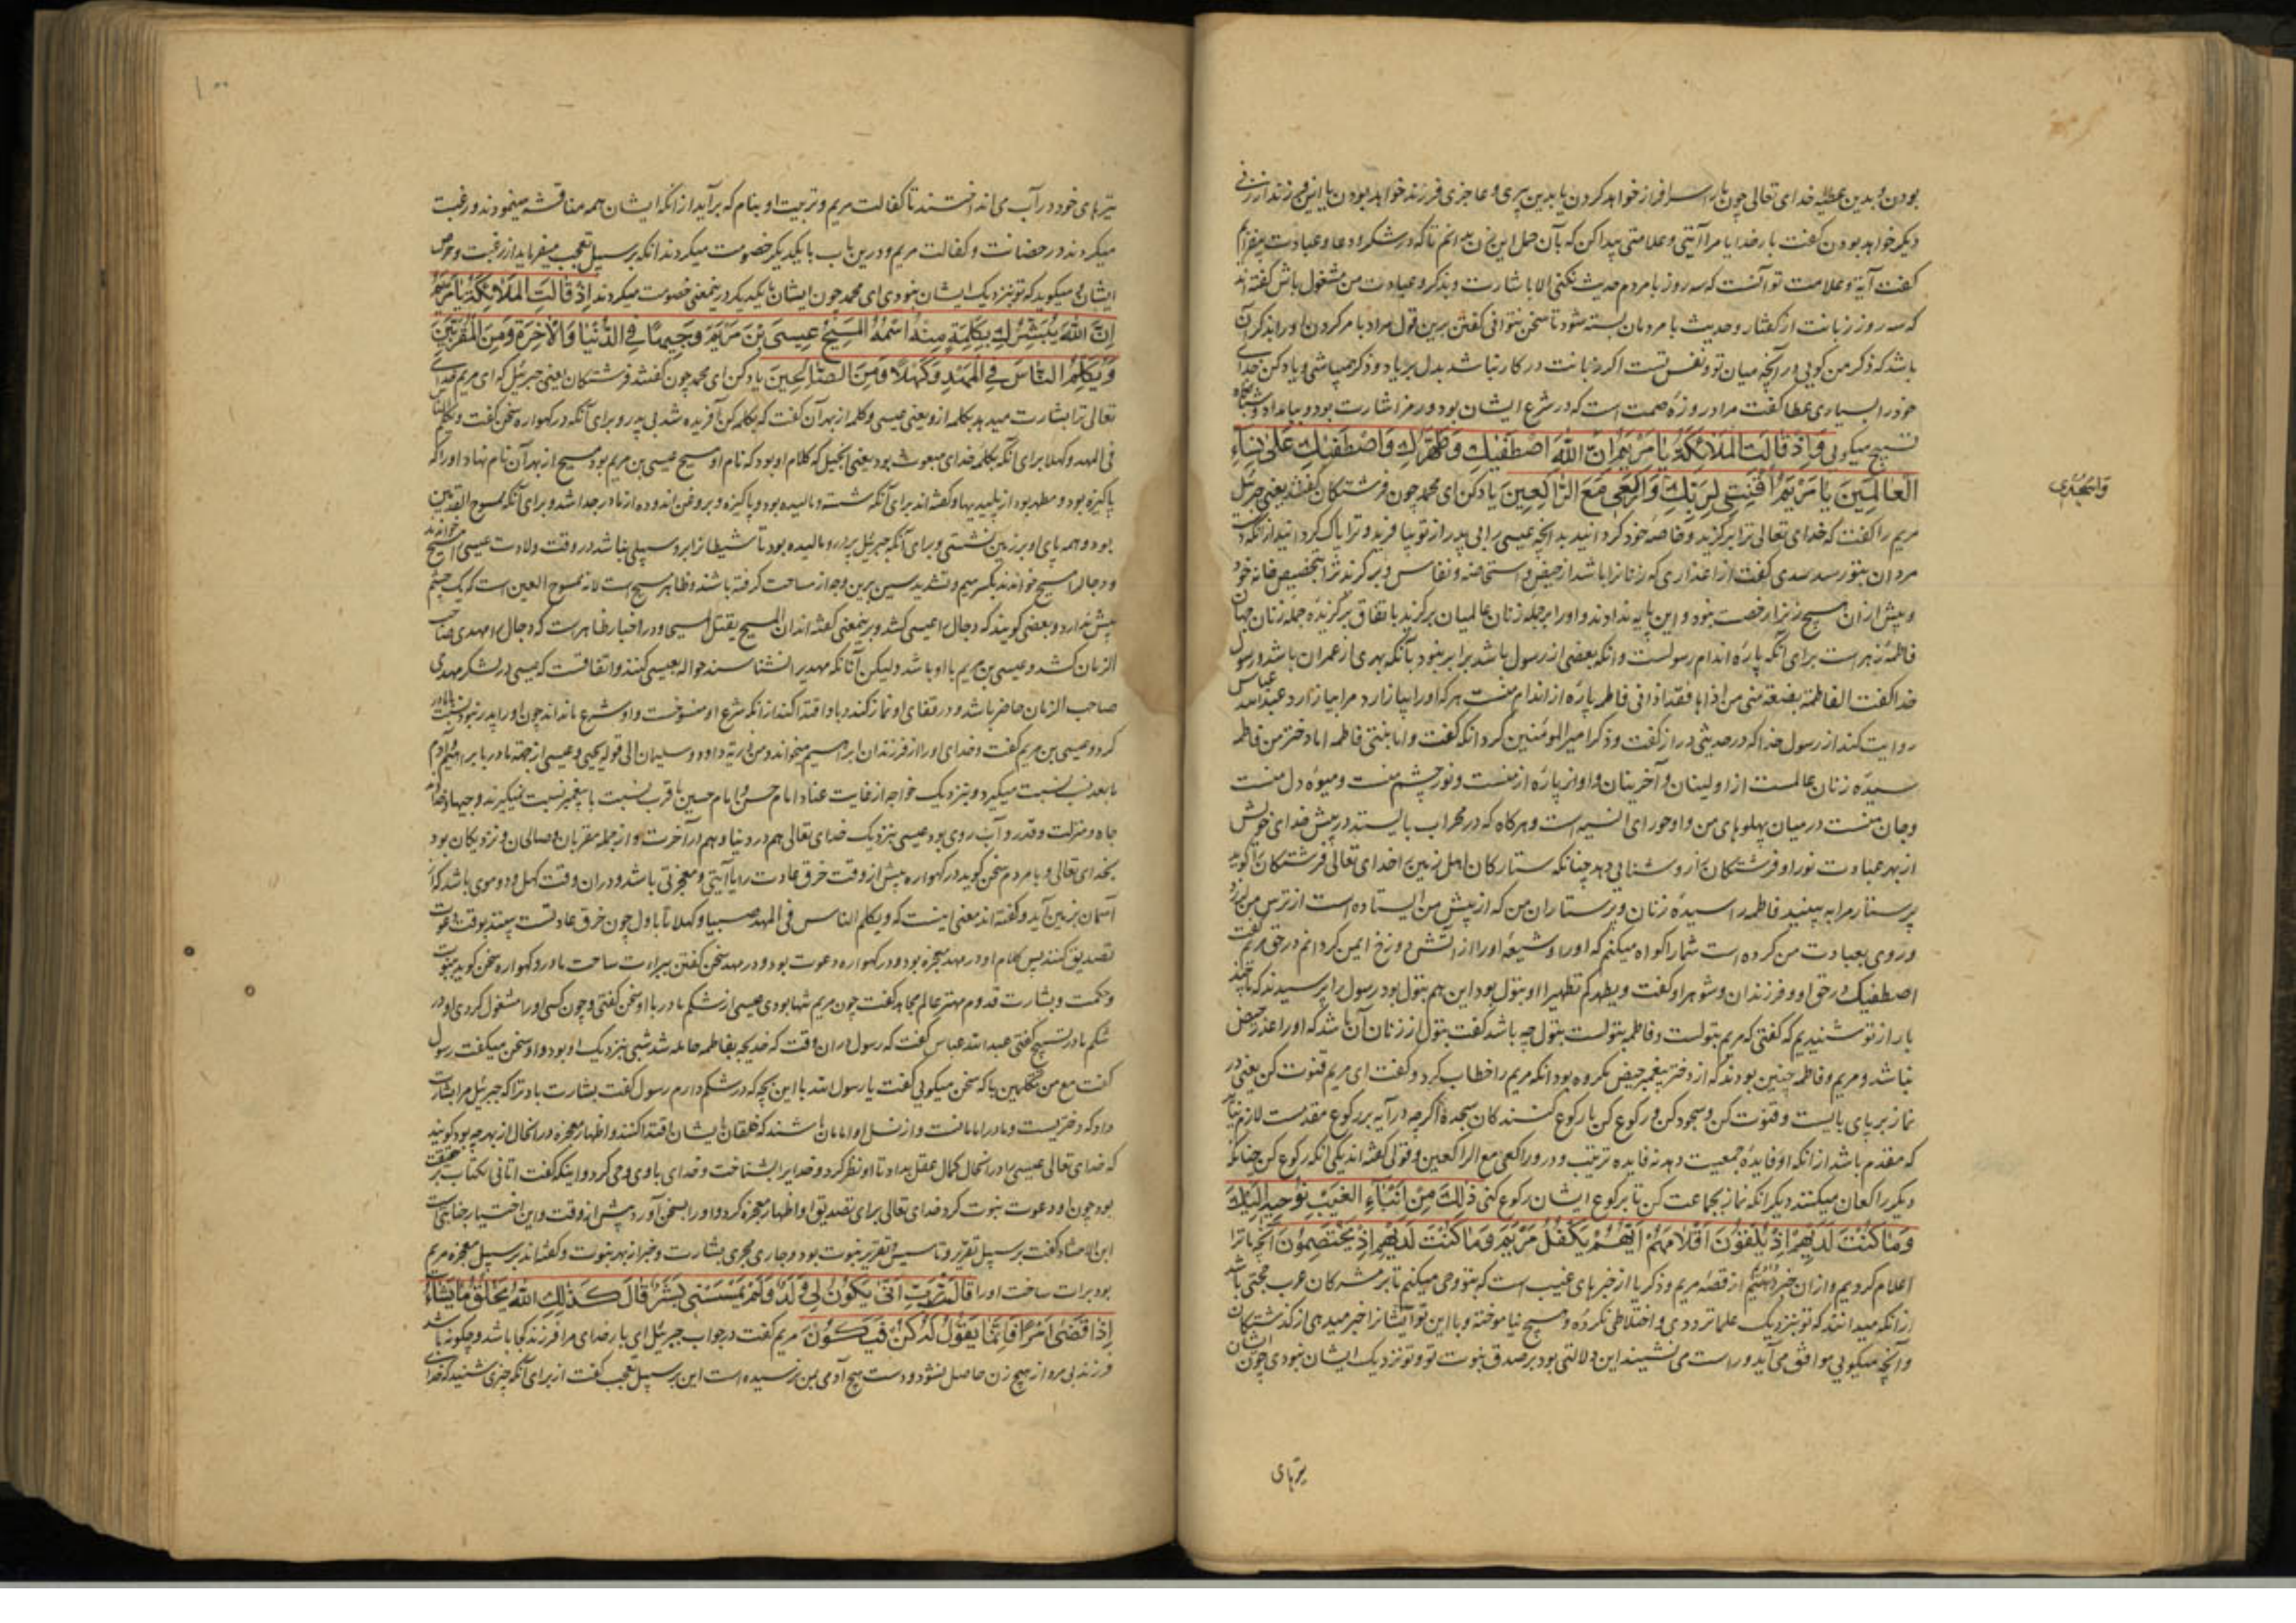 بودن و بدین عطیه خدای تعالی چون ما را سرافراز خواهد کردن یا بدین پیری و عاجزی فرزند خواهد بودن یا این فرزند از زنی
دیگر خواهد بودن گفت بار خدایا مرا آیتی و علامتی پیدا کن که بآن حمل این زن بدانم تا که در شکر و دعا و عبادت بیفزایم
گفت آیة و علامت تو آنست که سه روز با مردم حدیث نکنی الا باشارت و بذکر و عبادت من مشغول باش گفته‌اند
که سه روز زبانت از گفتار و حدیث با مردمان بسته شود تا سخن نتوانی گفتن برین قول مراد بامر کردن او را بذکر آن
باشد که ذکر من گویی در آنچه میان تو و نفس تست اگر زبانت در کار نباشد بدل بر یاد و ذکر من باشی و یاد کن خدای
خود را بسیاری عطا گفت مراد روزهٔ صمت است که در شرع ایشان بود و رمز اشارت بود و بامداد و شبانگاه
تسبیح میگویی وَاِذْ قَالَتِ المَلَائِکَةُ یَا مَرْیَمُ اِنَّ اللهَ اصْطَفَیٰکِ وَطَهَّرَکِ وَاصْطَفَیٰکِ عَلَیٰ نِسَاءِ
العَالَمِینَ یَا مَرْیَمُ اقْنُتِی لِرَبِّکِ وَارْکَعِی مَعَ الرَّاکِعِینَ یاد کن ای محمد چون فرشتگان گفتند یعنی جبرئیل
وَاسْجُدِی
مریم را گفت که خدای تعالی ترا برگزید و خاصهٔ خود گردانید بدانچه عیسی را بی پدر از تو بیافرید و ترا پاک گردانید از آنکه دست
مردان بتو رسد سدی گفت از اعذاری که زنانرا باشد از حیض و استحاضه و نفاس و برگزید ترا بتخصیص خانه خود
و پیش از آن هیچ زنرا رخصت نبود و این پایه ندادند و او را بر جمله زنان عالمیان برگزید باتفاق برگزیده جمله زنان جهان
فاطمهٔ زهراست برای آنکه پارهٔ اندام رسولست و آنکه بعضی از رسول باشد برابر نبود با آنکه بهری از عمران باشد و رسول
خدا گفت الفاطمة بضعة منی من اذاها فقد اذانی فاطمه پارهٔ از اندام منست هر که او را بیازارد مرا بیازارد عبدالله عباس
روایت کند از رسول خدا که در حدیثی دراز گفت و ذکر امیرالمومنین کرد آنکه گفت و اما بنتی فاطمه اما دختر من فاطمه
سیدهٔ زنان عالمست از اولینان و آخرینان و او از پارهٔ از منست و نور چشم منست و میوهٔ دل منست
و جان منست در میان پهلوهای من و او حورای انسیه است و هرگاه که در محراب بایستد در پیش خدای خویش
از بهر عبادت نور او فرشتگان را روشنایی دهد چنانکه ستارگان اهل زمین را خدای تعالی فرشتگان را گوید
پرستار مرا به بینید فاطمه را سیدهٔ زنان و پرستاران من که از پیش من ایستاده است از ترس من لرزد
و روی بعبادت من کرده است شما را گواه میکنم که او را و شیعهٔ او را از آتش دوزخ ایمن گردانم در حق مریم گفت
اصطفیک در حق او و فرزندان و شوهر او گفت و یطهرکم تطهیرا او بتول بود این هم بتول بود رسول را پرسیدند که ما چند
بار از تو شنیدیم که گفتی که مریم بتولست و فاطمه بتولست بتول چه باشد گفت بتول از زنان آن باشد که او را عذر حیض
نباشد و مریم و فاطمه چنین بودند که از دختر پیغمبر حیض مکروه بود آنکه مریم را خطاب کرد و گفت ای مریم قنوت کن یعنی در
نماز بر پای بایست و قنوت کن و سجود کن و رکوع کن با رکوع کنندگان سجده اگرچه در آیه بر رکوع مقدمست لازم نیاید
که مقدم باشد از آنکه او فایدهٔ جمعیت دهد نه فایده ترتیب و در وارکعی مع الراکعین دو قول گفته‌اند یکی آنکه رکوع کن چنانکه
دیگر راکعان میکنند دیگر آنکه نماز بجماعت کن تا برکوع ایشان رکوع کنی ذٰلِکَ مِنْ اَنْبَاءِ الغَیْبِ نُوحِیهِ اِلَیْکَ
وَمَا کُنْتَ لَدَیْهِمْ اِذْ یُلْقُونَ اَقْلَامَهُمْ اَیُّهُمْ یَکْفُلُ مَرْیَمَ وَمَا کُنْتَ لَدَیْهِمْ اِذْ یَخْتَصِمُونَ آنچه ما ترا
اعلام کردیم و از آن خبر دادیم از قصهٔ مریم و ذکریا از خبرهای غیب است که بتو وحی میکنم تا بر مشرکان عرب حجتی باشد
از آنکه میدانند که تو بنزدیک علما تردد و اختلاطی نکردهٔ و هیچ نیاموخته و با این تو ایشانرا خبر میدهی از گذشتگان
و آنچه میگویی موافق می‌آید و راست می‌نشیند این دلالتی بود بر صدق نبوت تو و تو نزدیک ایشان نبودی چون ایشان
تیرهای
۱۰۰
تیرهای خود در آب می‌انداختند تا کفالت مریم و تربیت او بنام که برآید از آنکه ایشان همه مناقشه مینمودند و رغبت
میکردند در حضانت و کفالت مریم و درین باب با یکدیگر خصومت میکردند آنکه بر سبیل تعجب میفرماید از رغبت و حرص
ایشان و میگوید که تو بنزدیک ایشان نبودی ای محمد چون ایشان با یکدیگر درین معنی خصومت میکردند اِذْ قَالَتِ المَلَائِکَةُ یَا مَرْیَمُ
اِنَّ اللهَ یُبَشِّرُکِ بِکَلِمَةٍ مِنْهُ اسْمُهُ المَسِیحُ عِیسَی بْنُ مَرْیَمَ وَجِیهًا فِی الدُّنْیَا وَالْاٰخِرَةِ وَمِنَ المُقَرَّبِینَ
وَیُکَلِّمُ النَّاسَ فِی المَهْدِ وَکَهْلًا وَمِنَ الصَّالِحِینَ یاد کن ای محمد چون گفتند فرشتگان یعنی جبرئیل که ای مریم خدای
تعالی ترا بشارت میدهد بکلمه ازو یعنی عیسی و کلمه از بهر آن گفت که بکلمه کن آفریده شد بی پدر و برای آنکه در گهواره سخن گفت و یکلم الناس
فی المهد و کهلا برای آنکه بکلمهٔ خدای مبعوث بود یعنی انجیل که کلام او بود که نام او مسیح عیسی بن مریم بود مسیح از بهر آن نام نهاد او را که
پاکیزه بود و مطهر بود از پلیدیها و گفته‌اند برای آنکه شسته و مالیده بود و پاکیزه و بروغن اندوده از مادر جدا شد و برای آنکه ممسوح القدمین
بود و همه پای او بر زمین نشستی و برای آنکه جبرئیل پر درو مالیده بود تا شیطانرا برو سبیلی نباشد در وقت ولادت عیسی را مسیح خوانند
و دجال را مسیح خوانند بکسر میم و تشدید سین برین وجه از مساحت گرفته باشند و ظاهر مسیح است لانه ممسوح العین است که یک چشم
بیش ندارد و بعضی گویند که دجال را عیسی کشد و برین معنی گفته‌اند ان المسیح یقتل المسیح و در اخبار ظاهر است که دجال را مهدی صاحب
الزمان کشد و عیسی بن مریم با او باشد ولیکن آنانکه مهدیرا نشناسند حواله بعیسی کنند و اتفاقست که عیسی در لشکر مهدی
صاحب الزمان حاضر باشد و در قفای او نماز کند و باو اقتدا کند از آنکه شرع او منسوخست و او بی شرع ماند چون او را پدر نبود نسبت با مادر
کرد و عیسی بن مریم گفت و خدای او را از فرزندان ابراهیم میخواند و من ذریته داود و سلیمان الی قوله یحیی و عیسی از جهة مادر با ابراهیم و آدم
بابعد نسب نسبت میگیرد و بنزدیک خواجه از غایت عناد امام حسن و امام حسین با قرب نسبت با پیغمبر نسبت نمیگیرند و جیها خداوند
جاه و منزلت و قدر و آب روی بود عیسی بنزدیک خدای تعالی هم در دنیا و هم در آخرت و از جمله مقربان و صالحان و نزدیکان بود
بخدای تعالی و با مردم سخن گوید در گهواره پیش از وقت خرق عادت را با آیتی و معجزتی باشد و در آن وقت کهل و دوموی باشد که از
آسمان بزمین آید و گفته‌اند معنی اینست که و یکلم الناس فی المهد صبیا و کهلا تا باول چون خرق عادتست ببینند بوقت دعوت
تصدیق کنند پس کلام او در مهد معجزه بود و در گهواره دعوت بود و در مهد سخن گفتن ببراءت ساحت مادر و گهواره سخن گوید بنبوت
و حکمت و بشارت قدوم مهتر عالم مجاهد گفت چون مریم تنها بودی عیسی از شکم مادر با او سخن گفتی و چون کسی او را مشغول کردی او در
شکم مادر تسبیح گفتی عبدالله عباس گفت که رسول در آن وقت که خدیجه بفاطمه حامله شد شبی بنزدیک او بود و او سخن میگفت رسول
گفت مع من تتکلمین با که سخن میگویی گفت یا رسول الله با این بچه که در شکم دارم رسول گفت بشارت باد ترا که جبرئیل مرا بشارت
داد که دختریست و مادر امامانست و از نسل او امامان باشند که خلقان بایشان اقتدا کنند و اظهار معجزه در آنحال از بهر چه بود گویند
که خدای تعالی عیسی را در آنحال کمال عقل بداد تا او نظر کرد و خدایرا بشناخت و خدای باو وحی کرد و اینکه گفت اتانی الکتاب بر حقیقت
بود چون او دعوت نبوت کرد خدای تعالی برای تصدیق او اظهار معجزه کرد و او را بسخن آورد پیش از وقت و این اختیار جبائیست
ابن الاخشاد گفت بر سبیل تقریر و تاسیس و تقریر نبوت بود و جاری مجری بشارت و خبر از بهر نبوت و گفته‌اند بر سبیل معجزه مریم
بود براءت ساحت او را قَالَتْ رَبِّ اَنّٰی یَکُونُ لِی وَلَدٌ وَلَمْ یَمْسَسْنِی بَشَرٌ قَالَ کَذٰلِکِ اللهُ یَخْلُقُ مَا یَشَاءُ
اِذَا قَضَیٰ اَمْرًا فَاِنَّمَا یَقُولُ لَهُ کُنْ فَیَکُونُ مریم گفت در جواب جبرئیل ای بار خدای مرا فرزند کجا باشد و چگونه باشد
فرزند بی مرد از هیچ زن حاصل نشود و دست هیچ آدمی بمن نرسیده است این بر سبیل تعجب گفت از برای آنکه چیزی شنید که خدای